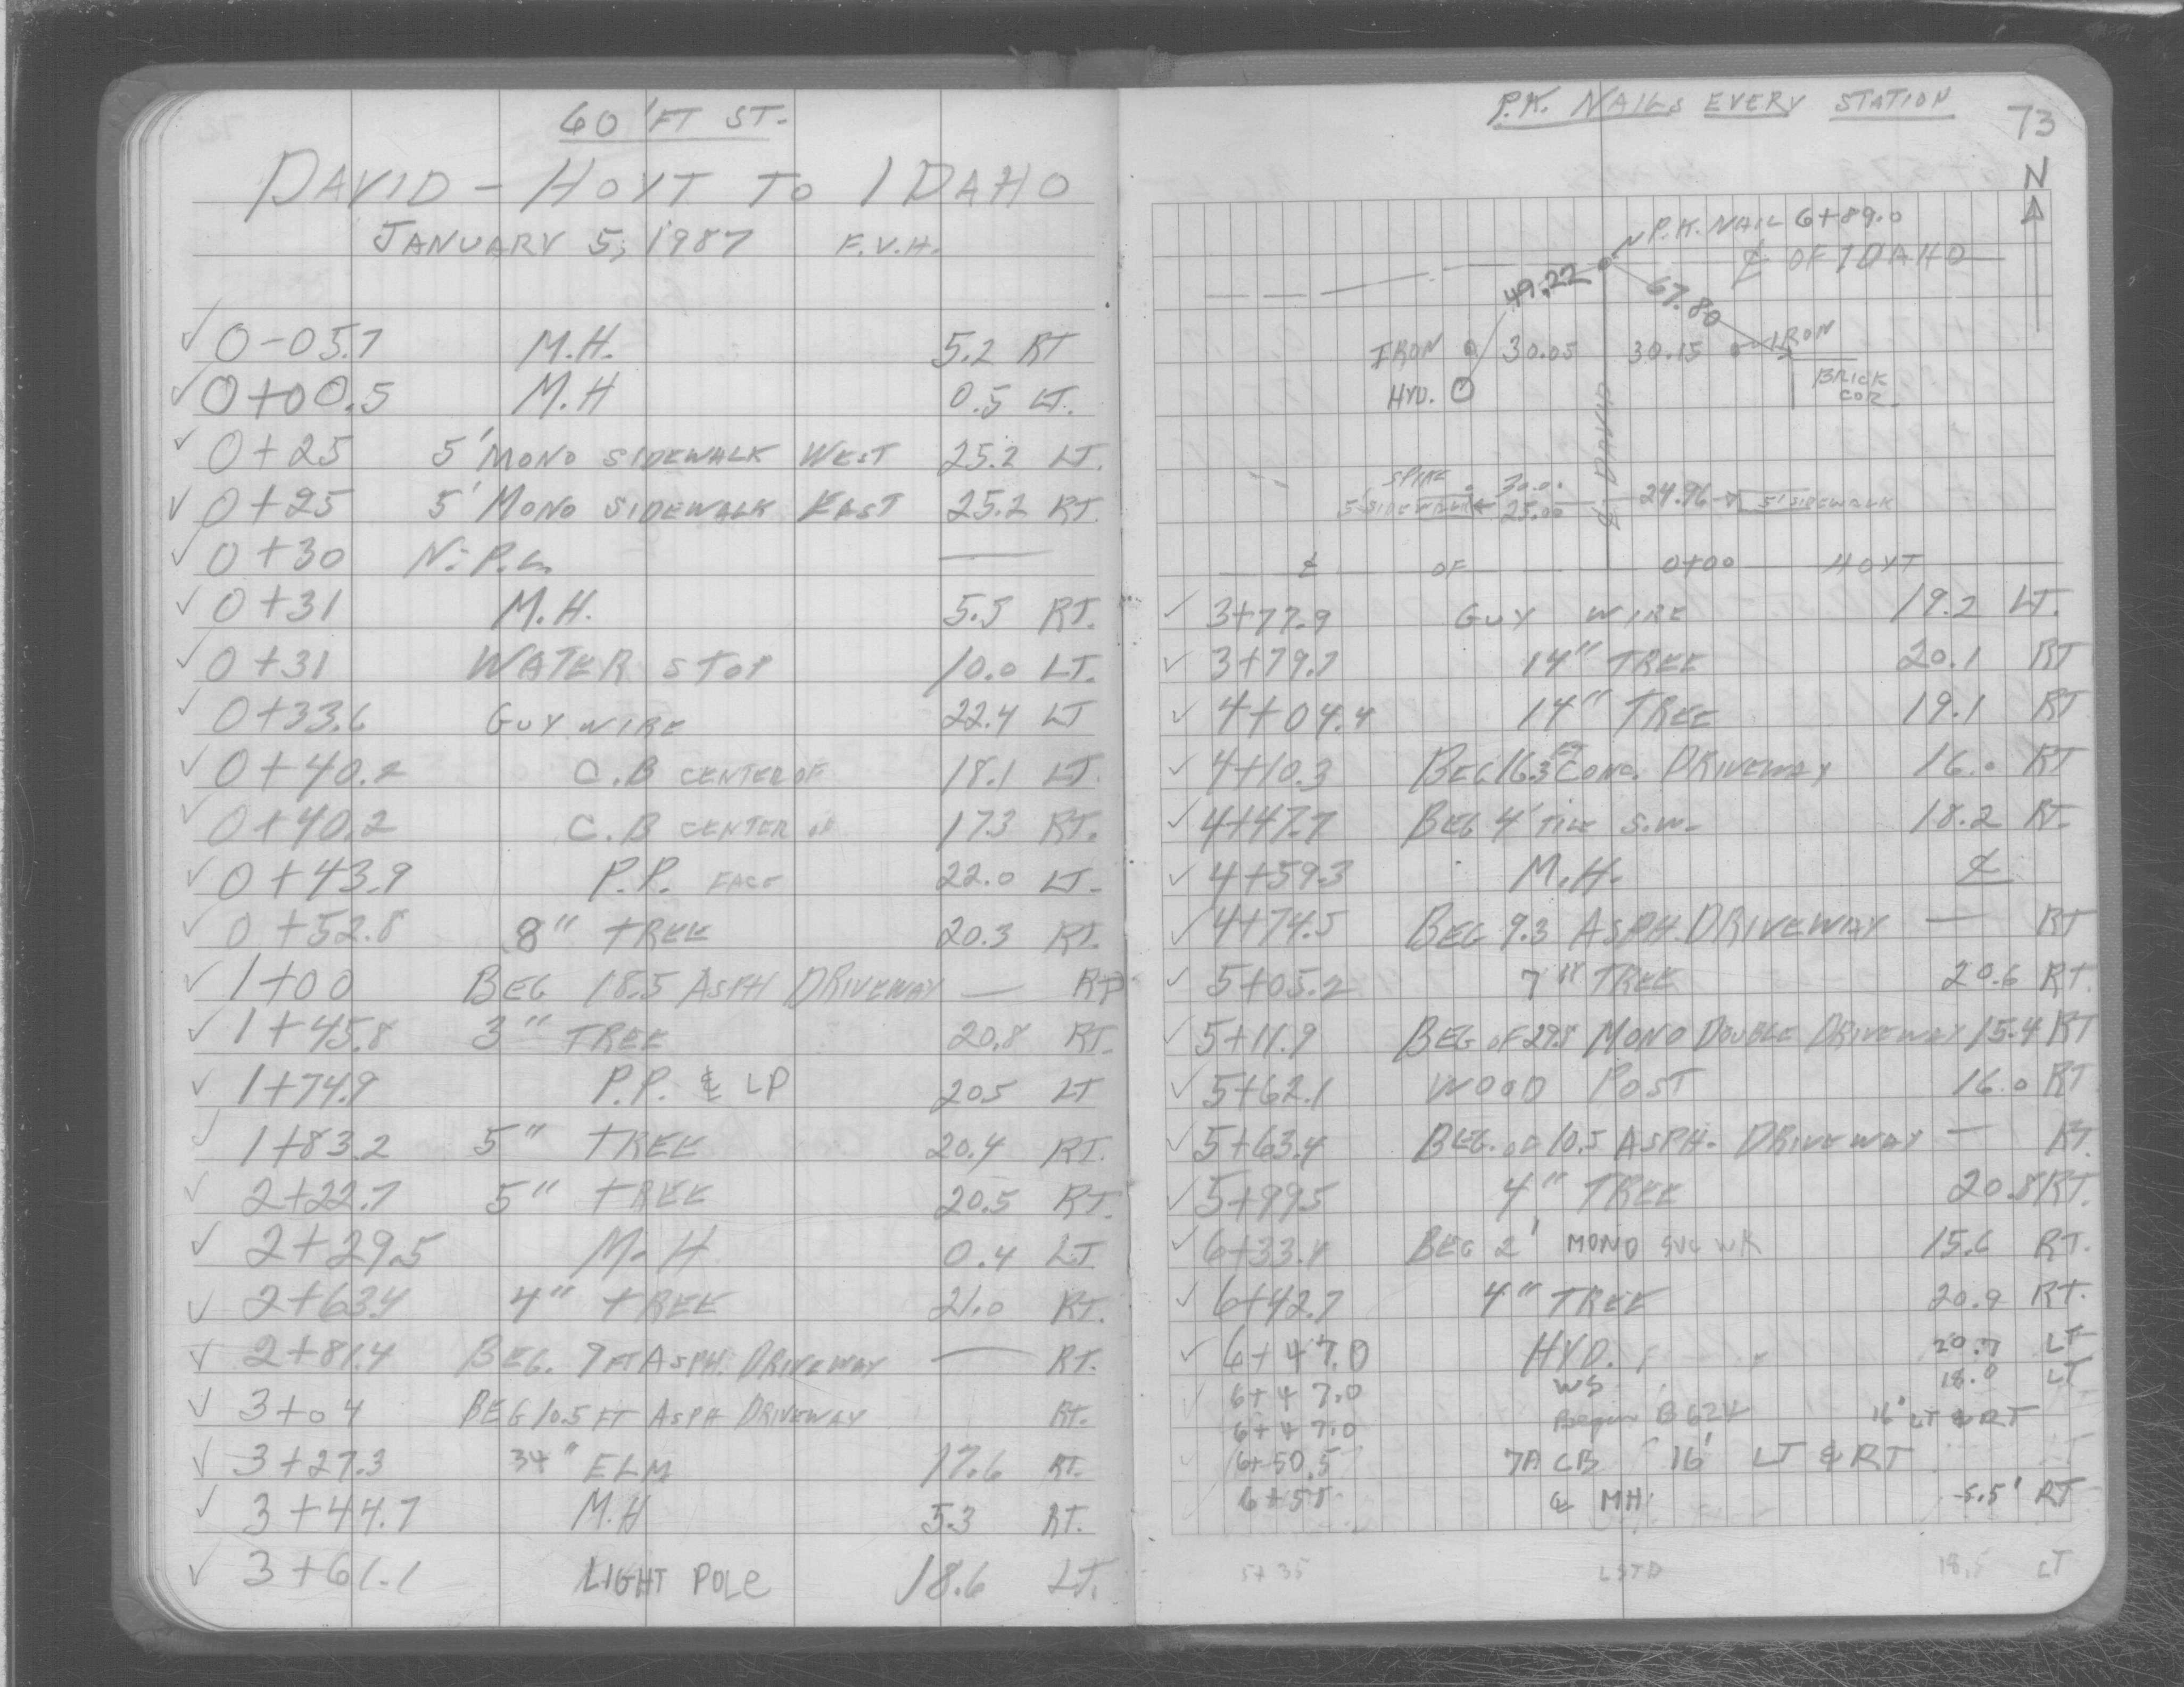 60 'FT ST.
DAVID - HOYT TO IDAHO
JANUARY 5, 1987 F.V.H.
✓ 0-05.7 M.H. 5.2 RT
✓ 0+00.5 M.H 0.5 LT.
✓ 0+25 5' MONO SIDEWALK WEST 25.2 LT.
✓ 0+25 5' MONO SIDEWALK EAST 25.2 RT.
✓ 0+30 —
✓ 0+31 M.H. 5.5 RT.
✓ 0+31 WATER STOP 10.0 LT.
✓ 0+33.6 GUY WIRE 22.4 LT
✓ 0+40.2 C.B CENTER OF 18.1 LT.
✓ 0+40.2 C.B CENTER OF 17.3 RT.
✓ 0+43.9 P.P. FACE 22.0 LT.
✓ 0+52.8 8" TREE 20.3 RT.
✓ 1+00 BEG 18.5 ASPH DRIVEWAY — RT
✓ 1+45.8 3" TREE 20.8 RT.
✓ 1+74.9 P.P. ℄ LP 20.5 LT
✓ 1+83.2 5" TREE 20.4 RT.
✓ 2+22.7 5" TREE 20.5 RT.
✓ 2+29.5 M.H 0.4 LT.
✓ 2+63.4 4" TREE 21.0 RT.
✓ 2+81.4 BEG. 9 FT ASPH. DRIVEWAY — RT.
✓ 3+04 BEG 10.5 FT ASPH DRIVEWAY RT.
✓ 3+27.3 34" ELM 17.6 RT.
✓ 3+44.7 M.H 5.3 RT.
✓ 3+61.1 LIGHT POLE 18.6 LT.
P.K. NAILS EVERY STATION
73
N
P.K. NAIL 6+89.0
℄ OF IDAHO
49.22 67.80
IRON 30.05 30.15 IRON
HYD. BRICK
COR.
℄ DAVID
SPIKE 30.0
5' SIDEWALK 25.00 24.96 5' SIDEWALK
℄ OF 0+00 HOYT
✓ 3+77.9 GUY WIRE 19.2 LT.
✓ 3+79.7 14" TREE 20.1 RT
✓ 4+04.4 14" TREE 19.1 RT
✓ 4+10.3 BEG 16.3 FT CONC. DRIVEWAY 16.0 RT
✓ 4+47.7 BEG 4' TILE S.W. 18.2 RT.
✓ 4+59.3 M.H. ℄
✓ 4+74.5 BEG 9.3 ASPH. DRIVEWAY — RT
✓ 5+05.2 7" TREE 20.6 RT.
✓ 5+11.9 BEG OF 29.8 MONO DOUBLE DRIVEWAY 15.4 RT
✓ 5+62.1 WOOD POST 16.0 RT
✓ 5+63.4 BEG. OF 10.5 ASPH. DRIVEWAY — RT.
✓ 5+99.5 4" TREE 20.8 RT.
✓ 6+33.8 BEG 2' MONO WK 15.6 RT.
✓ 6+42.7 4" TREE 20.9 RT.
✓ 6+47.0 HYD. 20.7 LT
6+47.0 WS 18.0 LT
6+47.0 Begin B624 16' LT & RT
6+50.5 7A CB 16' LT & RT
℄ MH 5.5' RT
5+35 LSTD 18.5 LT